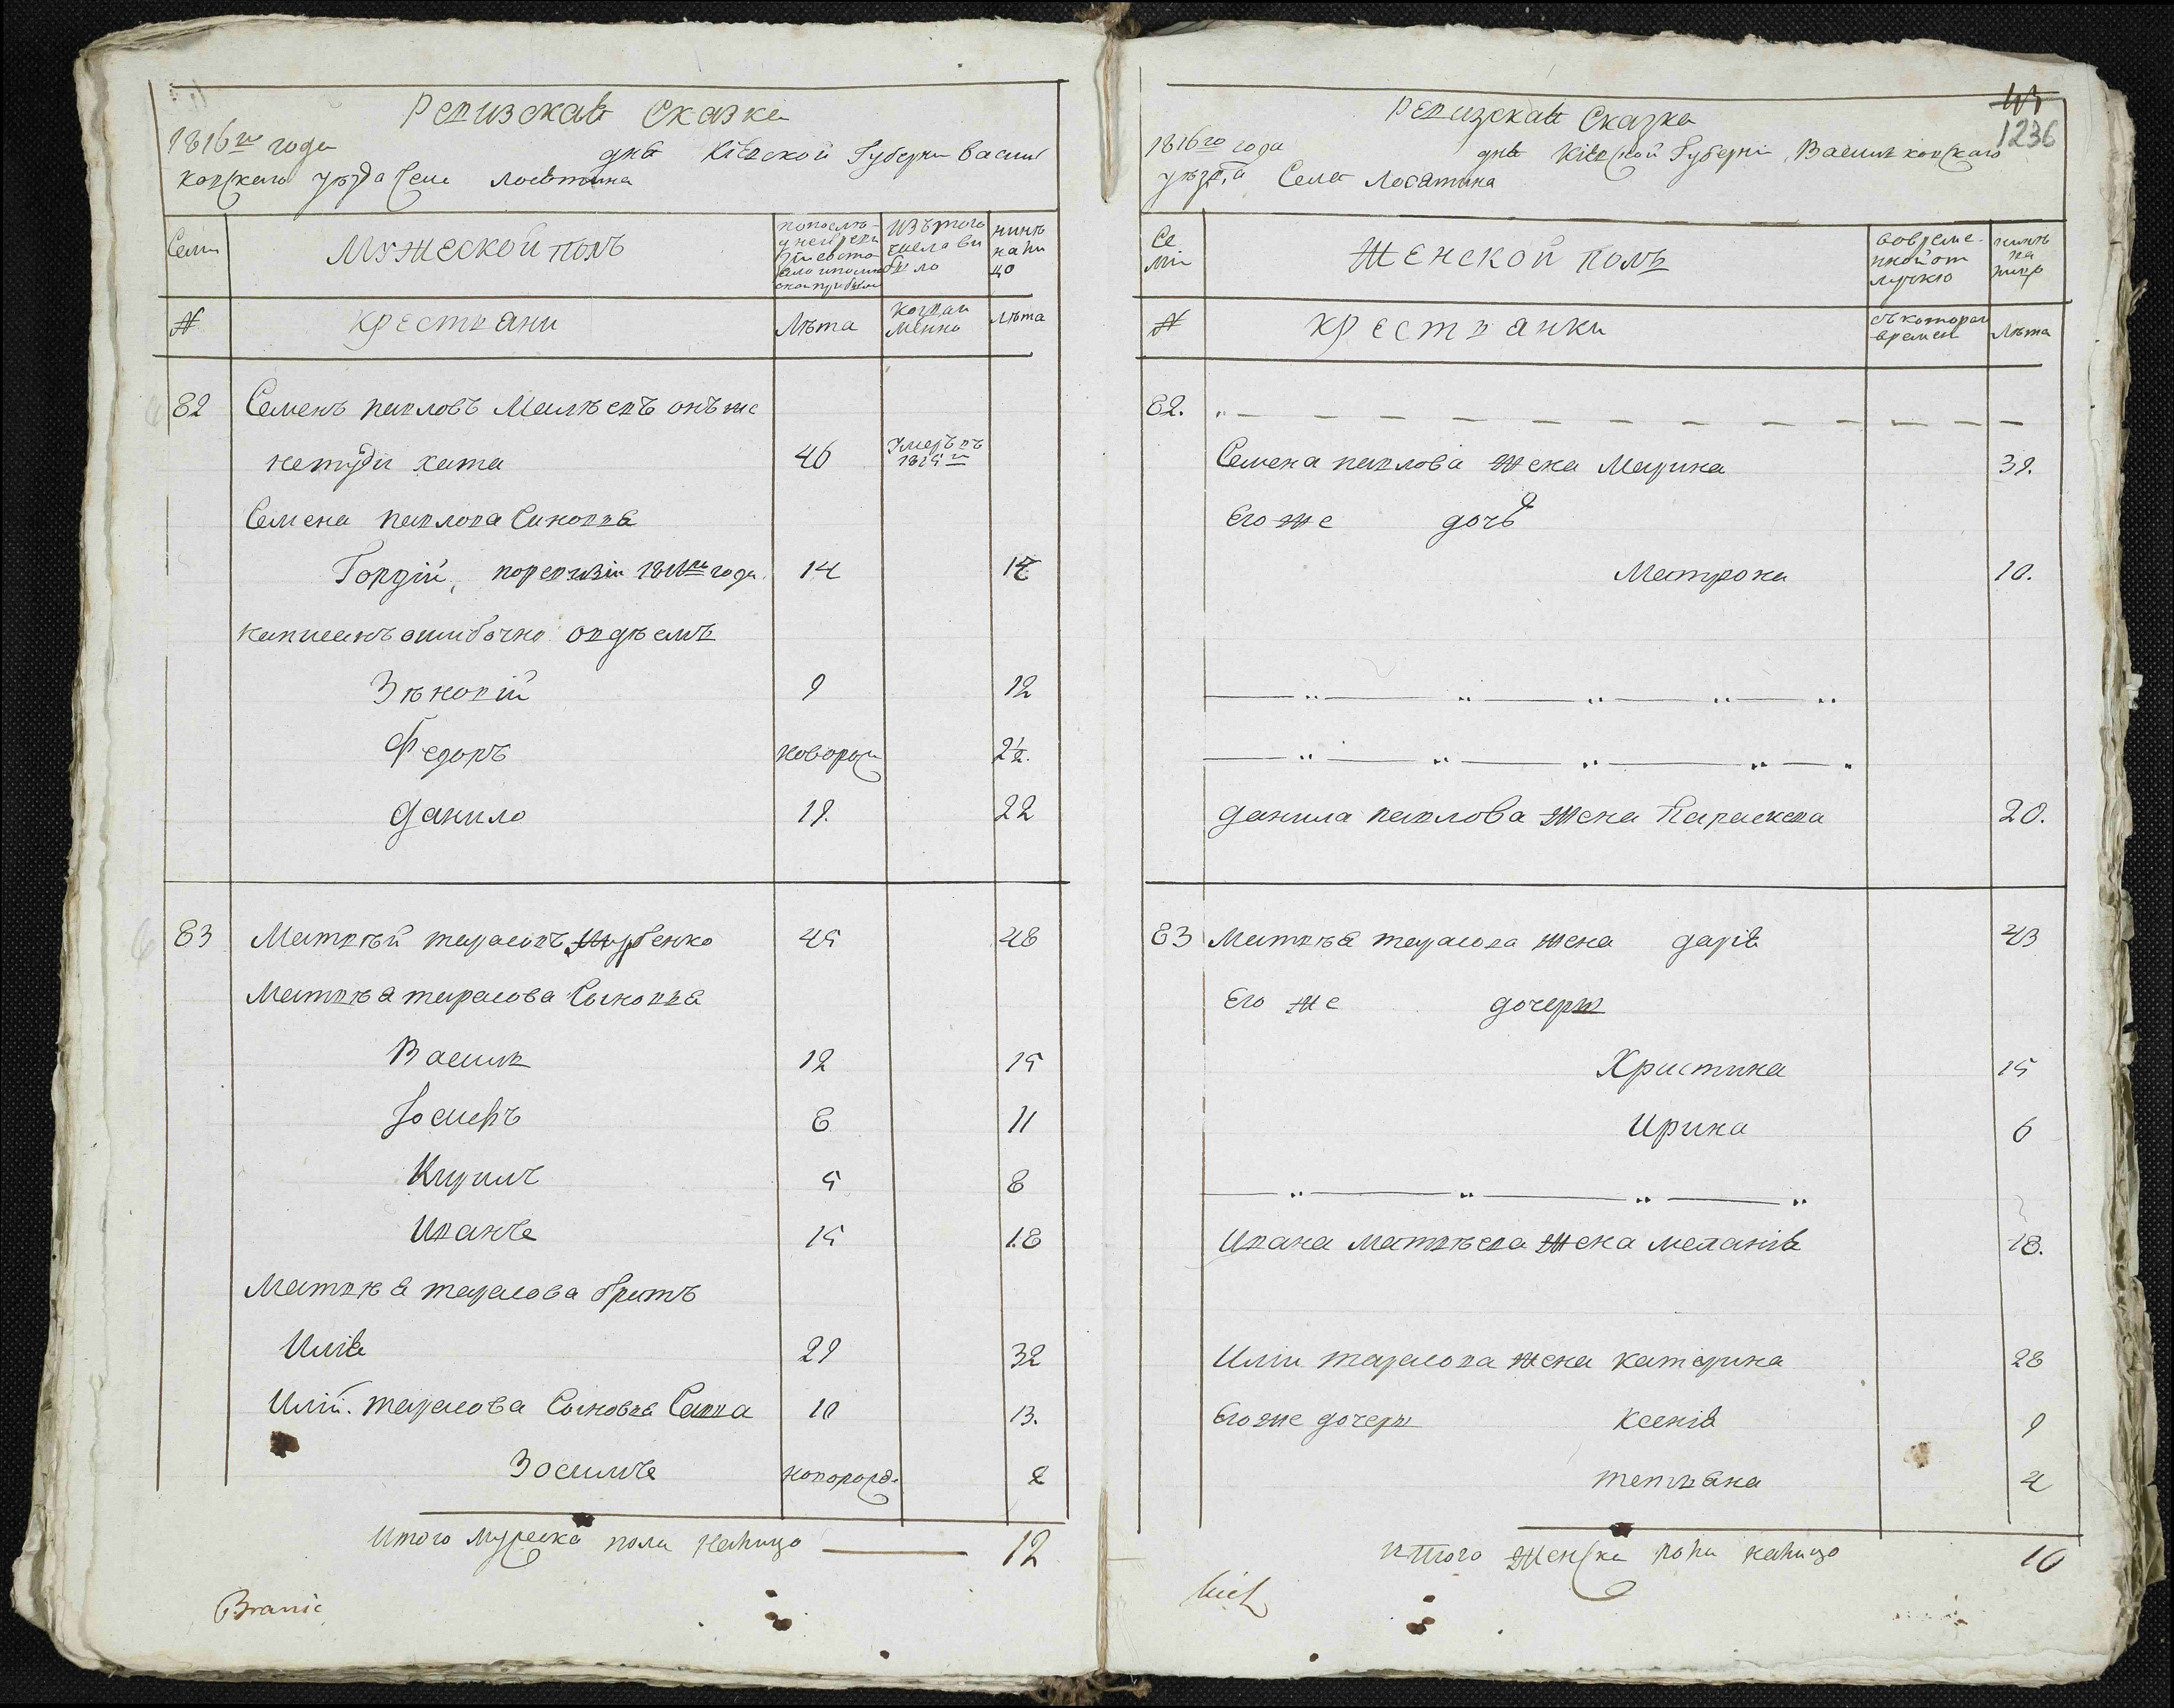 Ревизская Сказка
1816го года дня Кіевской Губерни Василь
ковскаго уезда Села Лосятина
Семи
Мужеской полъ
попослѣ-
дней реви
зіи состо
яло и после
оной прибыло
Изъ того
числа вы
было
нинѣ
на ли
цо
№
Крестьяни
Лѣта
Когда и
менно
Лѣта
82 Семенъ павловъ Мелѣевъ онъ же
нетуди хата 46 Умеръ въ
1815м
Семена павлова Синовья
Гордій, поревизіи 1811го года 14 17
написанъ ошибочно Овдѣемъ
Зѣновій 9 12
Федоръ новорож 2½.
Данило 19. 22
83 Матвѣй тарасовъ Щербенко 45 48
Матвѣя тарасова Сыновья
Василь 12 15
Іосифъ 8 11
Кирилъ 5 8
Иванъ 15 18
Матвѣя тарасова братъ
Илія 29 32
Иліи. тарасова Сыновья Савва 10 13.
Зосимъ новорожд. 2
Итого мужеска пола налицо 12
Branic
43
1236
Ревизская Сказка
1816го года дня Кіевской Губерніи Васильковскаго
уезда Села Лосятина
Се
ми
Женской полъ
вовреме-
нной от
лучкѣ
нинѣ
на
лицо
№
Крестьянки
съ котораго
времени
Лѣта
82.
Семена павлова жена Марина 39.
Его же дочь
Матрона 10.
Данила павлова жена Параскева 20.
83 Матвѣя тарасова жена дарія 43
Его же дочеры
Христина 15
Ирина 6
Ивана матвѣева жена меланія 18.
Иліи тарасова жена катерина 28
Его же дочеры Ксенія 9
тетьяна 4
Итого женска пола налицо 10